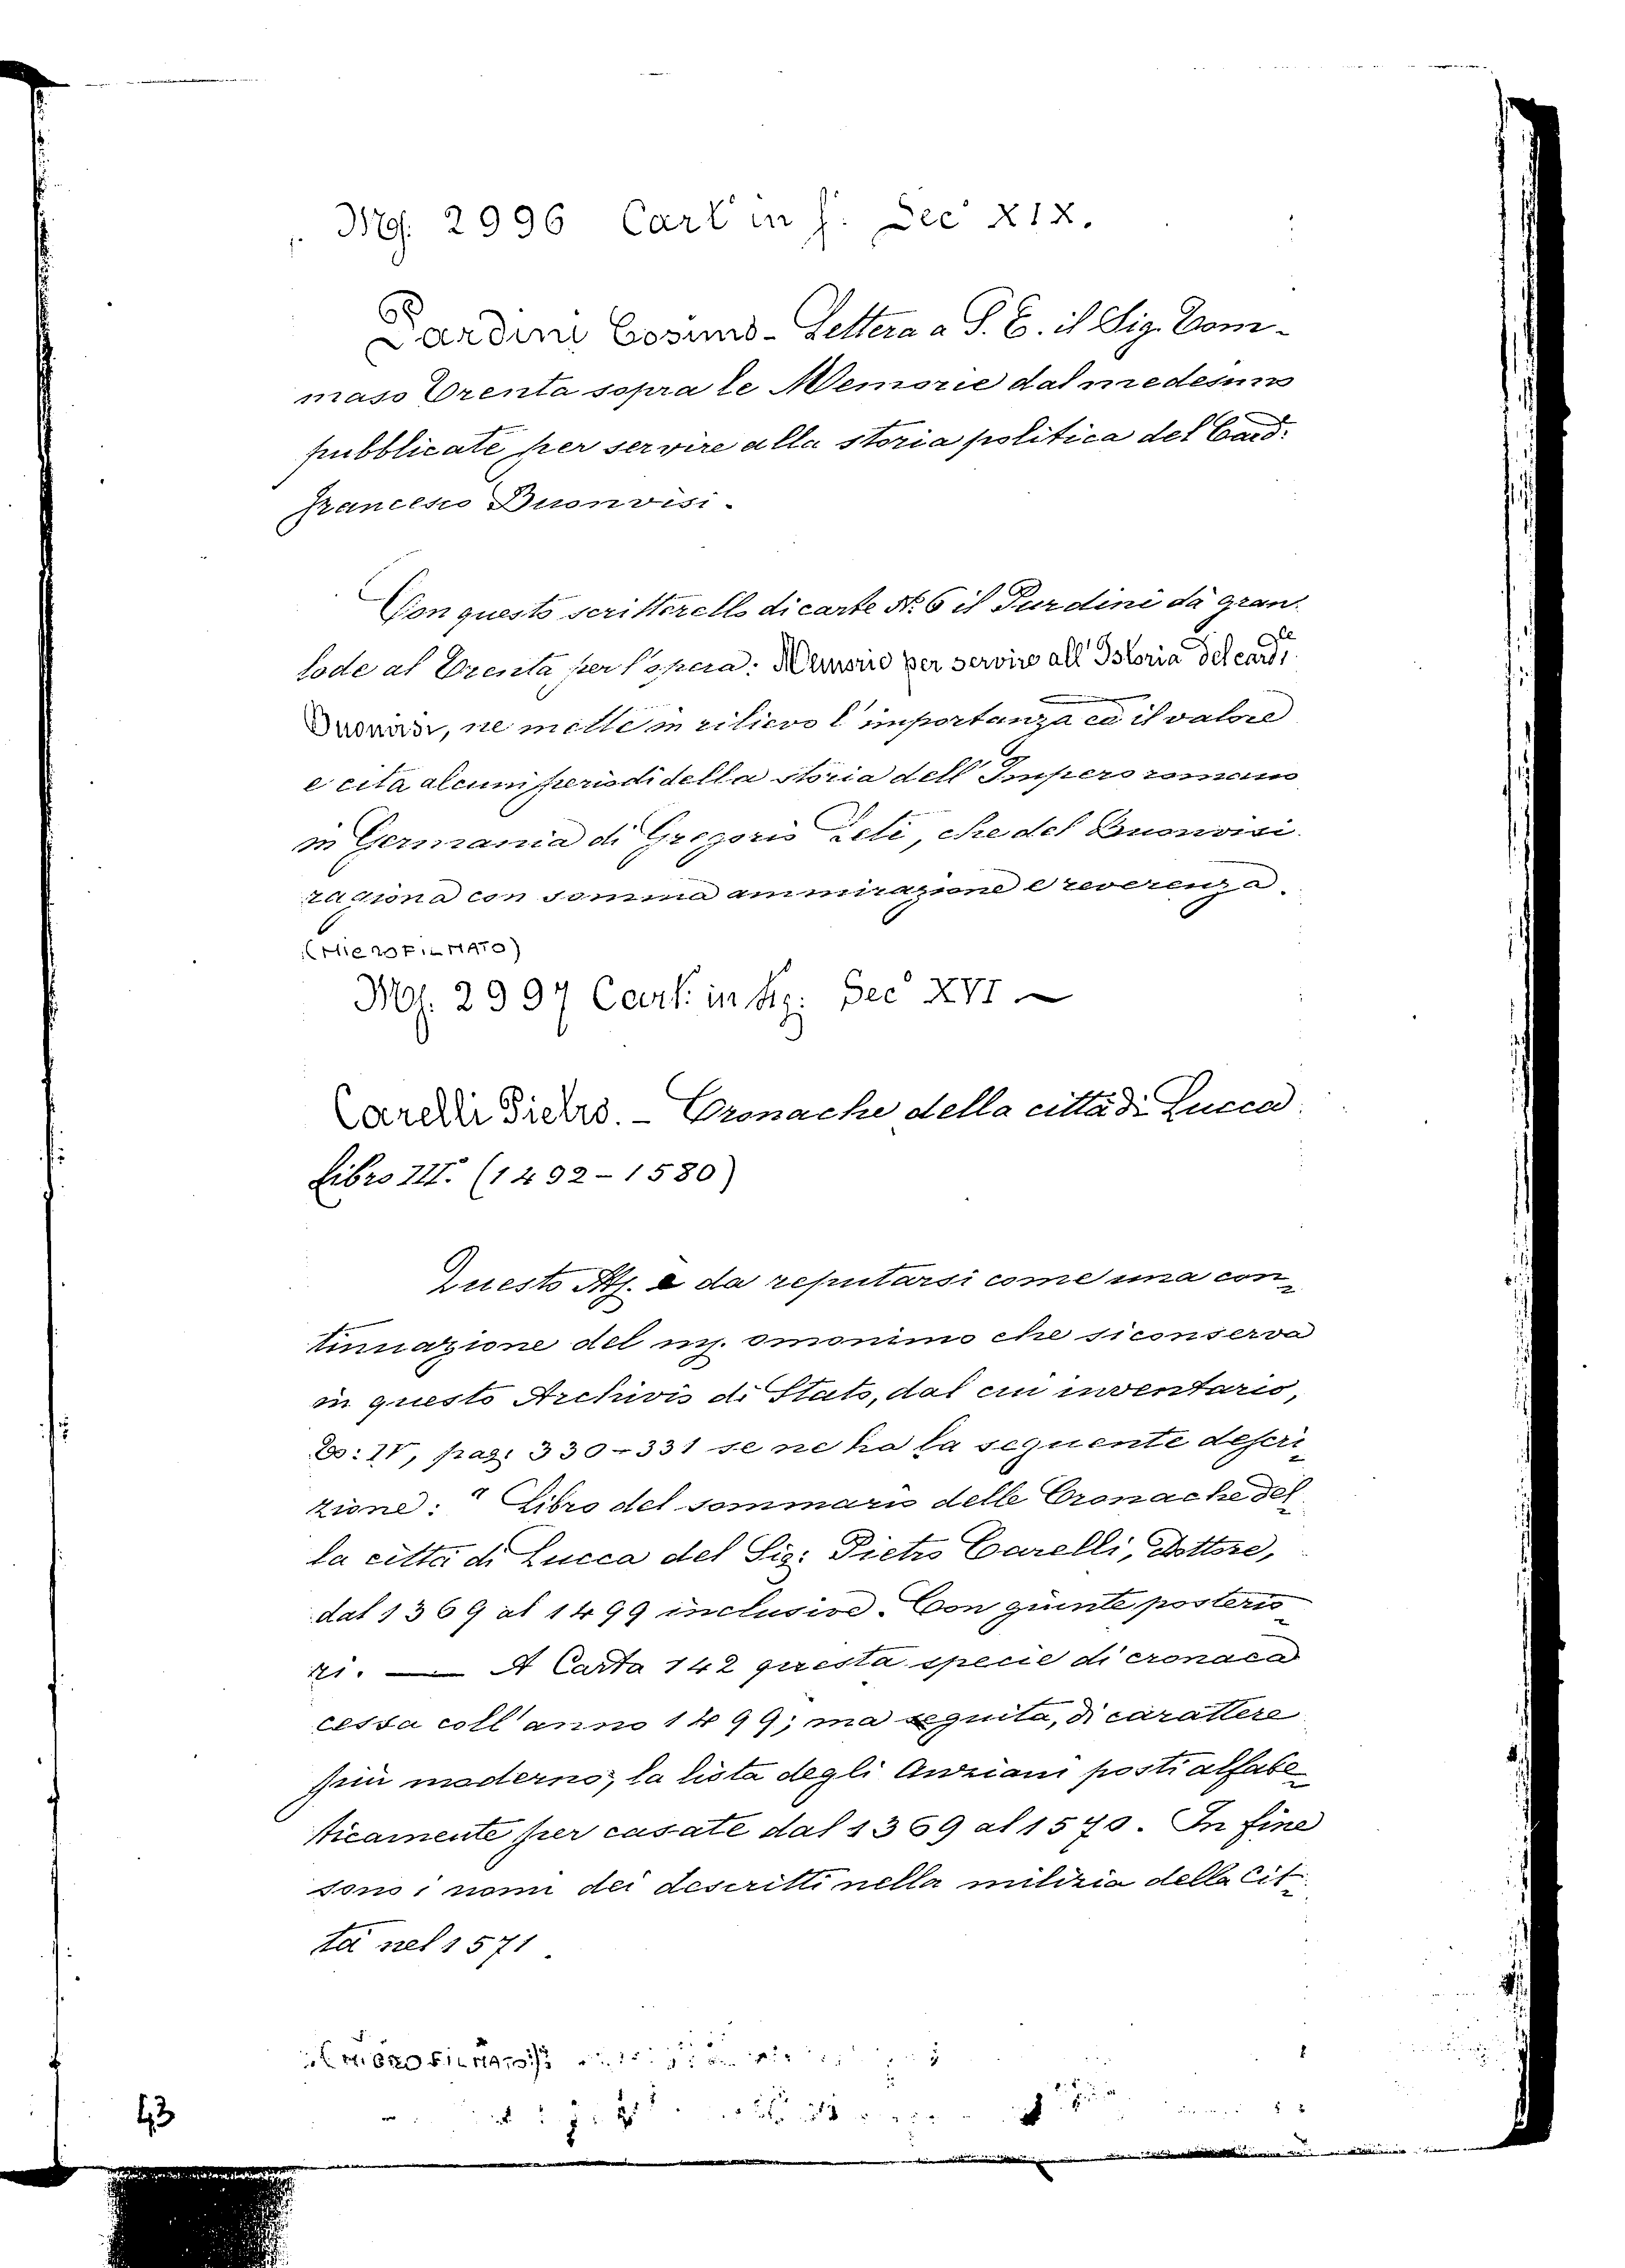 Ms. 2996 Cart. in f. Sec° XIX.
Pardini Cosimo - Lettera a S. E. il Sig. Tom-
maso Trenta sopra le Memorie dal medesimo
pubblicate per servire alla storia politica del Card:
Francesco Buonvisi.
Con questo scritterello di carte N. 6 il Pardini dà gran
lode al Trenta per l'opera: Memorie per servire all'Istoria del cardle
Buonvisi, ne mette in rilievo l'importanza ed il valore
e cita alcuni periodi della storia dell'Impero romano
in Germania di Gregorio Leti, che del Buonvisi
ragiona con somma ammirazione e reverenza.
(MICROFILMATO)
Ms. 2997 Cart. in fig: Sec° XVI
Carelli Pietro. - Cronache della città di Lucca
Libro III. (1492-1580)
Questo Ms. è da reputarsi come una con-
tinuazione del ms. omonimo che si conserva
in questo Archivio di Stato, dal cui inventario,
To: IV, pag: 330-331 se ne ha la seguente descri-
zione: "Libro del sommario delle Cronache del-
la città di Lucca del Sig: Pietro Carelli, Dottore,
dal 1369 al 1499 inclusive. Con giunte posterio-
ri. — A Carta 142 questa specie di cronaca
cessa coll'anno 1499; ma seguita, di carattere
più moderno, la lista degli Anziani posti alfabe-
ticamente per casate dal 1369 al 1570. In fine
sono i nomi dei descritti nella milizia della Cit-
tà nel 1571.
(MICROFILMATO)
43